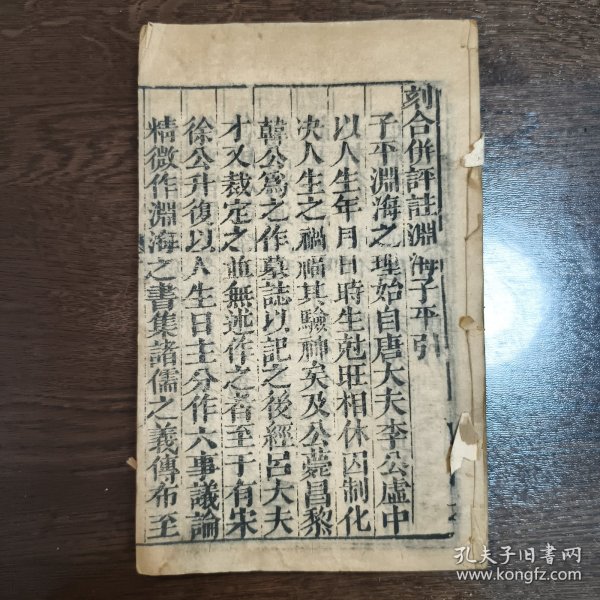 刻合併評註淵海子平引
子平淵海之理始自唐大夫李公虛中
以人生年月日時生尅旺相休囚制化
决人生之禍福其驗神矣及公薨昌黎
韓公爲之作墓誌以記之後經呂大夫
才又裁定之並無述作之者至于有宋
徐公升復以人生日主分作六事議論
精微作淵海之書集諸儒之義傳布至
孔夫子旧书网
www.kongfz.com